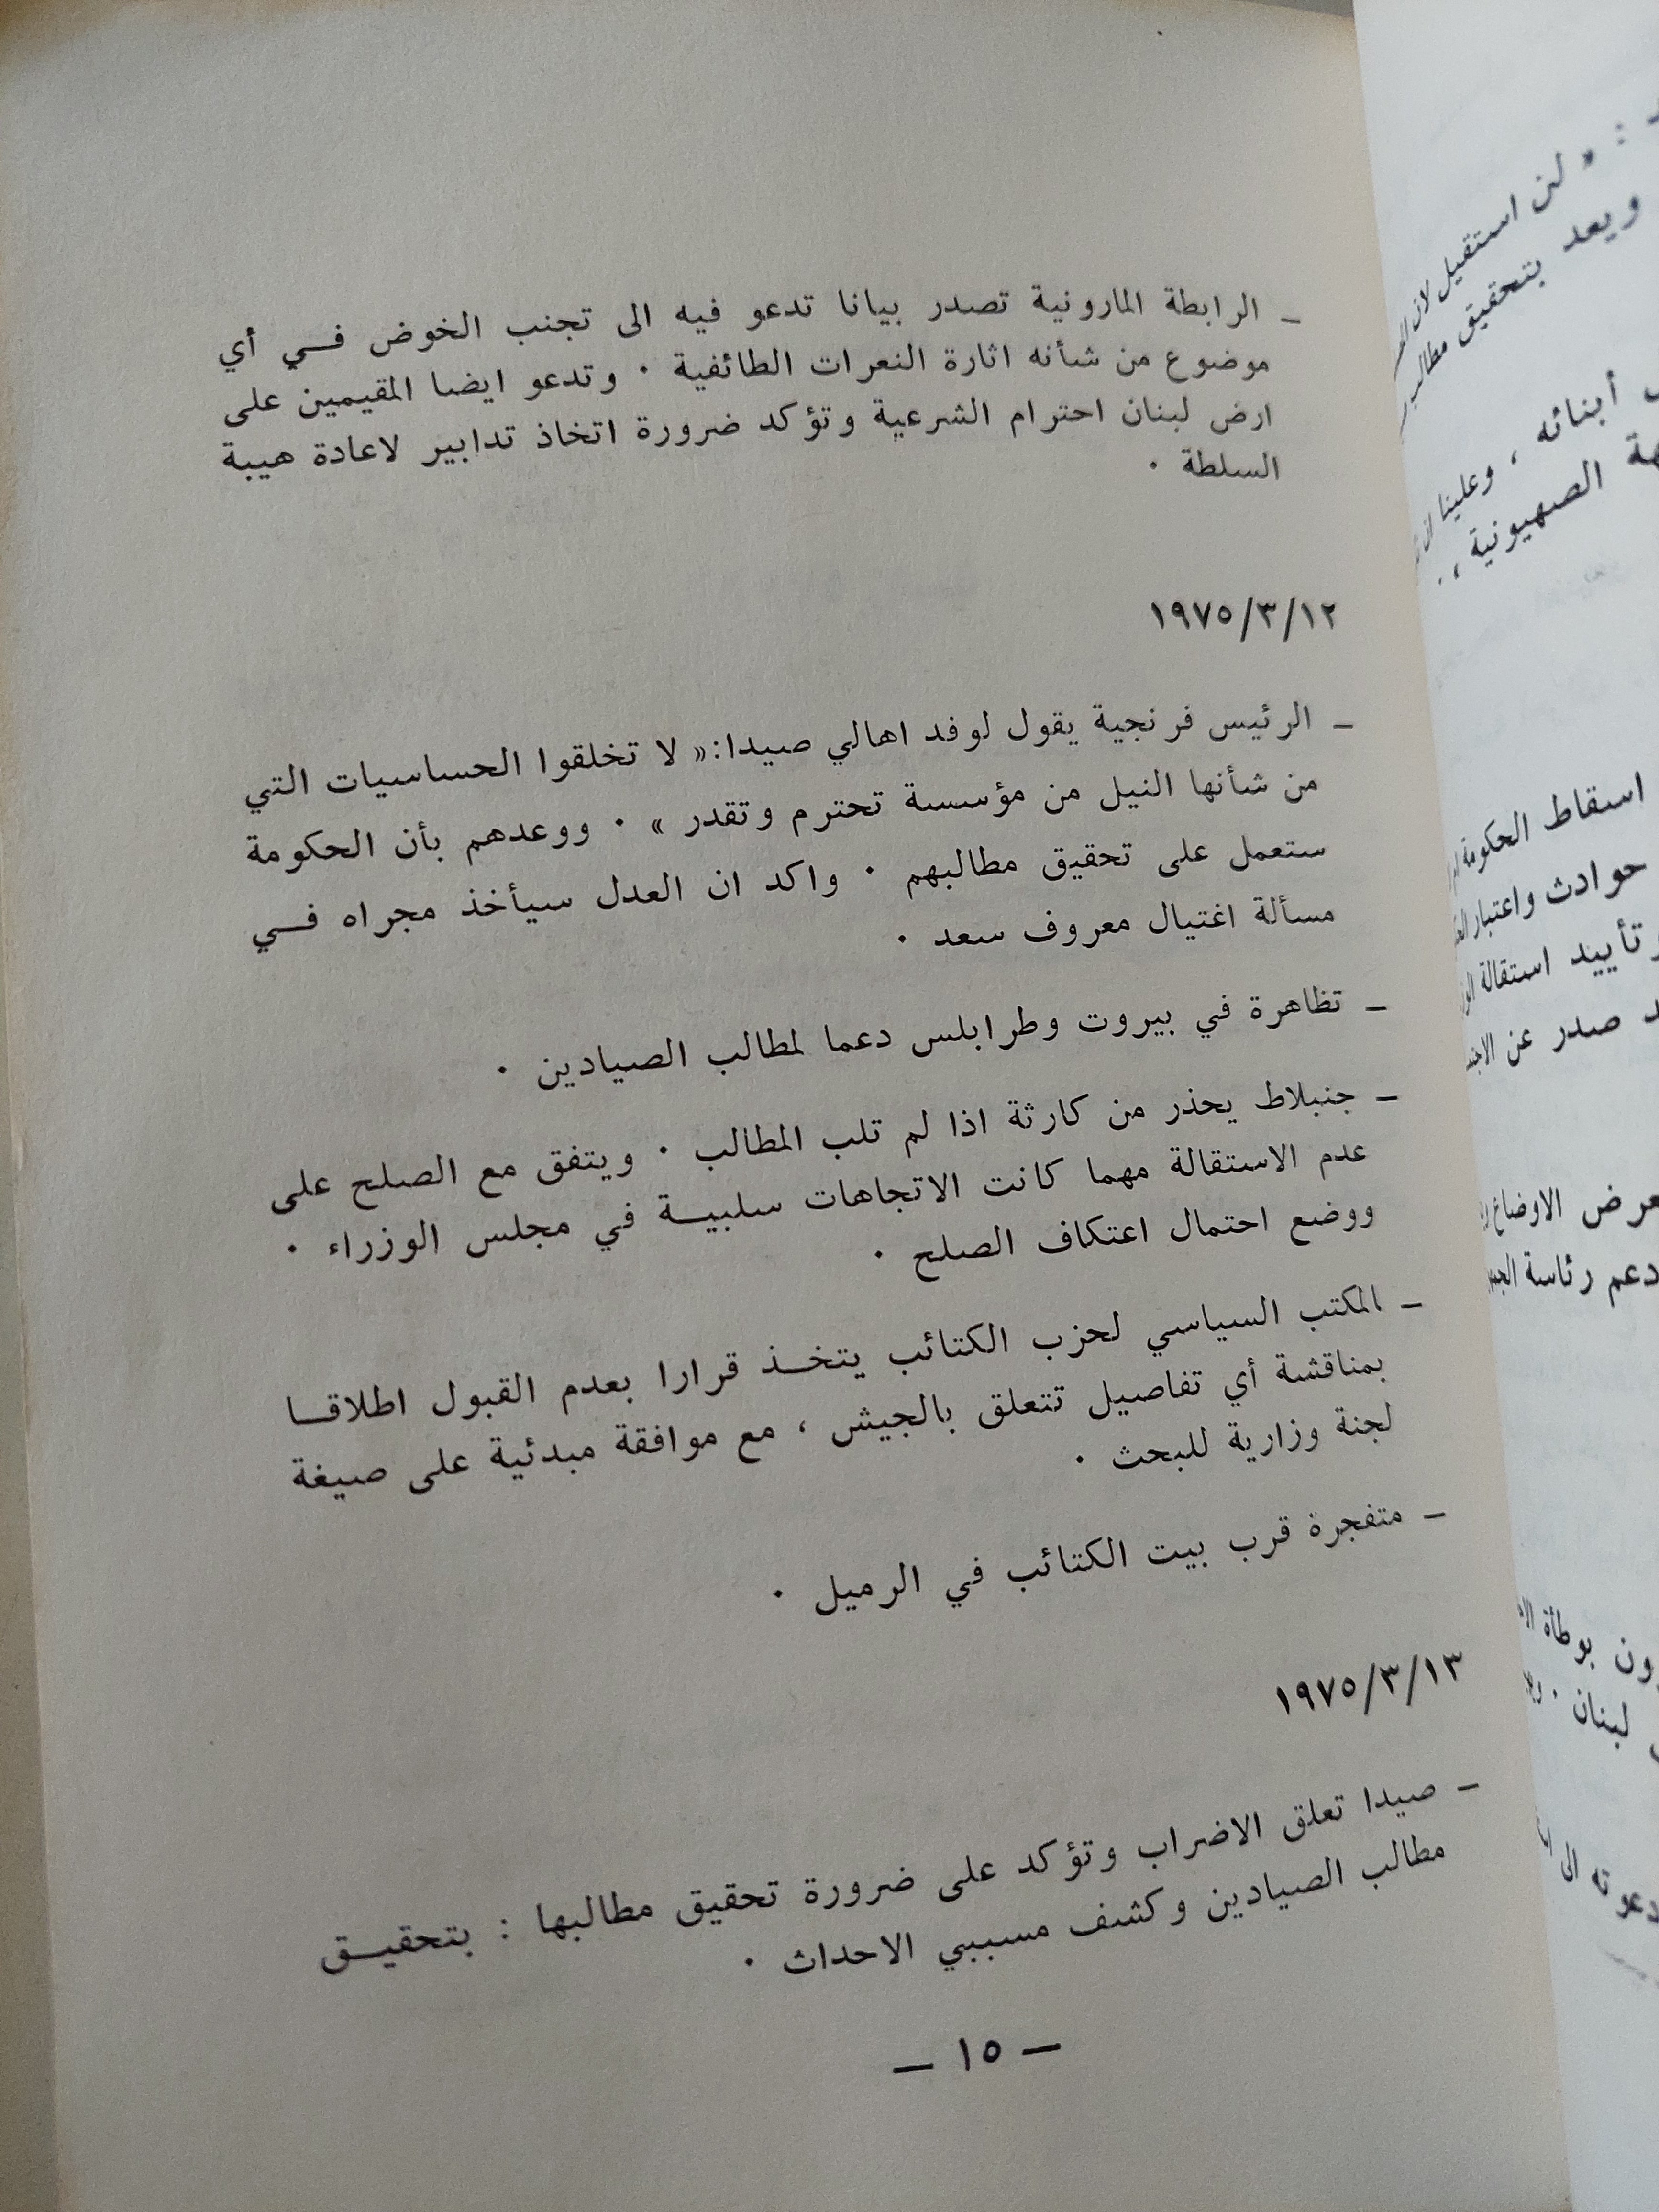 ـ الرابطة المارونية تصدر بيانا تدعو فيه الى تجنب الخوض فـي أي
موضوع من شأنه اثارة النعرات الطائفية . وتدعو ايضا المقيمين على
ارض لبنان احترام الشرعية وتؤكد ضرورة اتخاذ تدابير لاعادة هيبة
السلطة .
١٩٧٥/٣/١٢
ـ الرئيس فرنجية يقول لوفد اهالي صيدا: « لا تخلقوا الحساسيات التي
من شأنها النيل من مؤسسة تحترم وتقدر » . ووعدهم بأن الحكومة
ستعمل على تحقيق مطالبهم . واكد ان العدل سيأخذ مجراه فـي
مسألة اغتيال معروف سعد .
ـ تظاهرة في بيروت وطرابلس دعما لمطالب الصيادين .
ـ جنبلاط يحذر من كارثة اذا لم تلب المطالب . ويتفق مع الصلح على
عدم الاستقالة مهما كانت الاتجاهات سلبيـة في مجلس الوزراء .
ووضع احتمال اعتكاف الصلح .
ـ المكتب السياسي لحزب الكتائب يتخـذ قرارا بعدم القبول اطلاقـا
بمناقشة أي تفاصيل تتعلق بالجيش ، مع موافقة مبدئية على صيغة
لجنة وزارية للبحث .
ـ متفجرة قرب بيت الكتائب في الرميل .
١٩٧٥/٣/١٣
ـ صيدا تعلق الاضراب وتؤكد على ضرورة تحقيق مطالبها : بتحقيـق
مطالب الصيادين وكشف مسببي الاحداث .
ـ ١٥ ـ
: « لن استقيل لان
ويعد بتحقيق مطالب
أبنائه ، وعلينا ان
الصهيونية ،
اسقاط الحكومة
حوادث واعتبار
وتأييد استقالة
صدر عن
الاوضاع
دعم رئاسة
بوطأة
لبنان .
الى